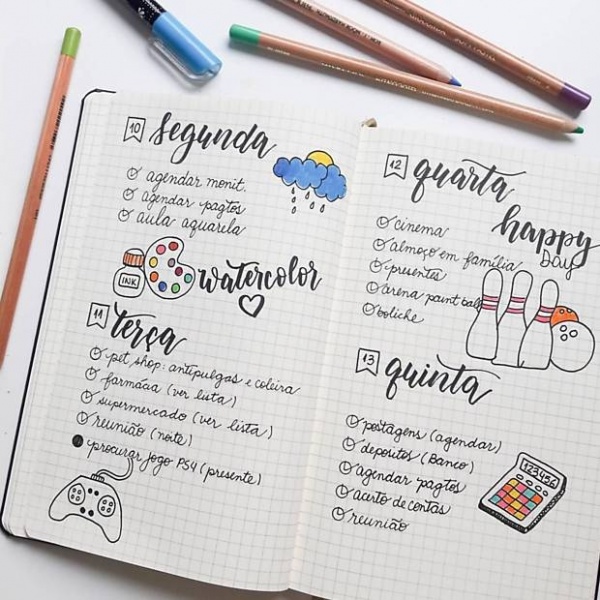 10 segunda
agendar monit.
agendar pagtos
aula aquarela
INK
watercolor
11 terça
pet shop: antipulgas e coleira
farmácia (ver lista)
supermercado (ver lista)
reunião (noite)
procurar jogo PS4 (presente)
12 quarta
happy
DAY
cinema
almoço em família
presentes
arena paint ball
boliche
13 quinta
postagens (agendar)
depósitos (Banco)
agendar pagtos
acerto de contas
reunião
123456